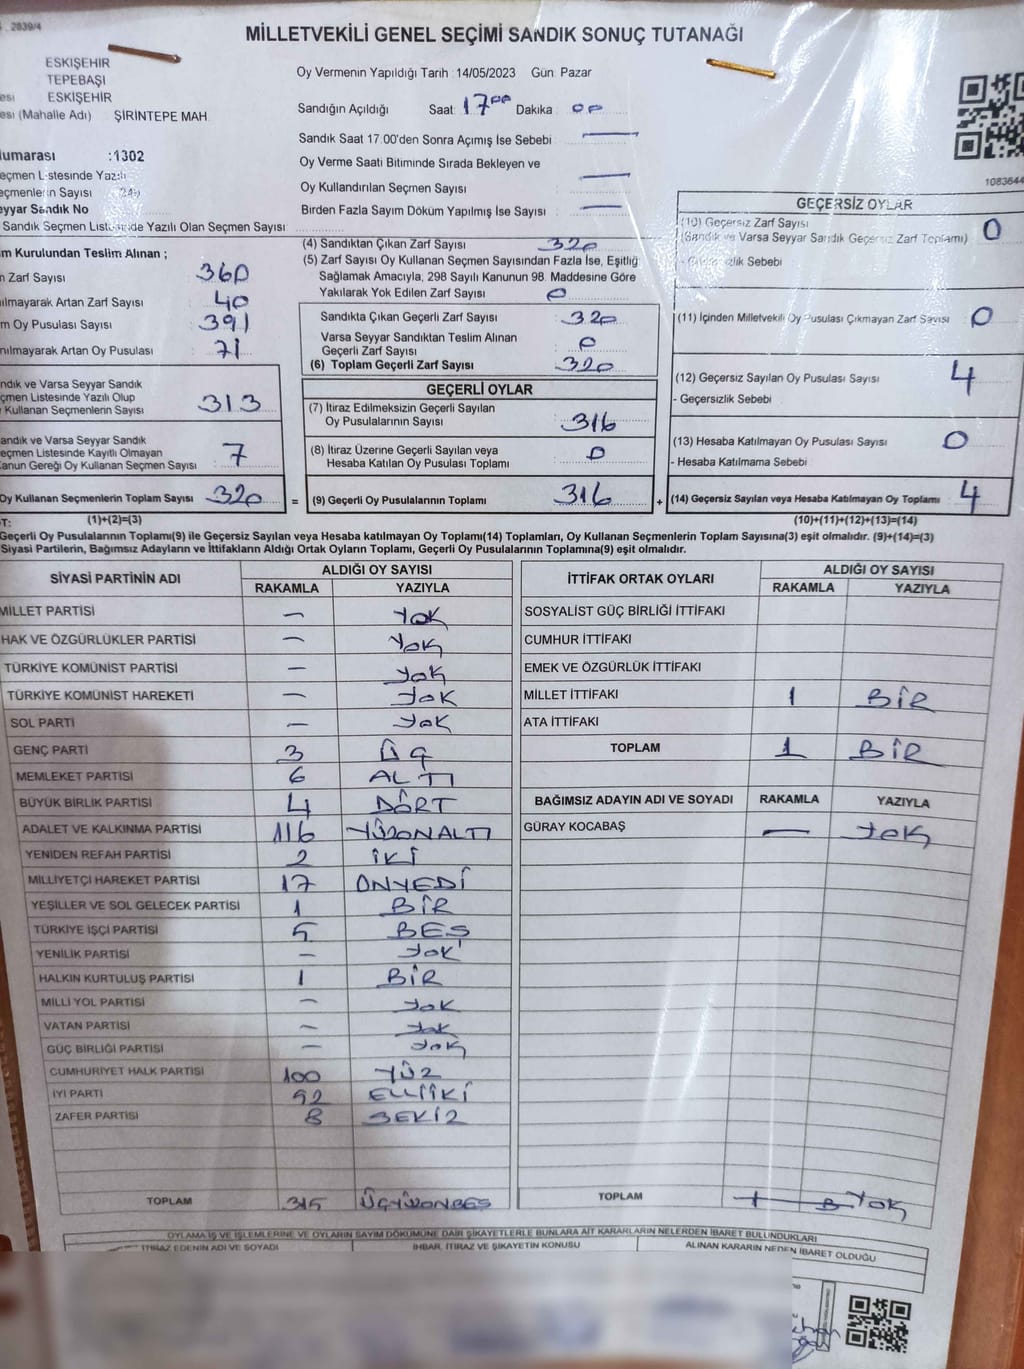 2839/4
MİLLETVEKİLİ GENEL SEÇİMİ SANDIK SONUÇ TUTANAĞI
ESKİŞEHİR
TEPEBAŞI
esi ESKİŞEHİR
esı (Mahalle Adı) ŞİRİNTEPE MAH
Oy Vermenin Yapıldığı Tarih :14/05/2023 Gün: Pazar
Sandığın Açıldığı Saat: 17 00 Dakika 00
Sandık Saat 17.00'den Sonra Açımış İse Sebebi
Oy Verme Saati Bitiminde Sırada Bekleyen ve
Oy Kullandırılan Seçmen Sayısı
Birden Fazla Sayım Döküm Yapılmış İse Sayısı
umarası :1302
eçmen Listesinde Yazılı
eçmenlerin Sayısı
eyyar Sandık No
Sandık Seçmen Listesinde Yazılı Olan Seçmen Sayısı
1083644
m Kurulundan Teslim Alınan ;
n Zarf Sayısı 360
ılmayarak Artan Zarf Sayısı 40
m Oy Pusulası Sayısı 391
nılmayarak Artan Oy Pusulası 71
ndık ve Varsa Seyyar Sandık
çmen Listesinde Yazılı Olup
Kullanan Seçmenlerin Sayısı 313
andık ve Varsa Seyyar Sandık
eçmen Listesinde Kayıtlı Olmayan
Kanun Gereği Oy Kullanan Seçmen Sayısı 7
Oy Kullanan Seçmenlerin Toplam Sayısı 320
(1)+(2)=(3)
(4) Sandıktan Çıkan Zarf Sayısı 320
(5) Zarf Sayısı Oy Kullanan Seçmen Sayısından Fazla İse, Eşitliğ
Sağlamak Amacıyla, 298 Sayılı Kanunun 98. Maddesine Göre
Yakılarak Yok Edilen Zarf Sayısı 0
Sandıkta Çıkan Geçerli Zarf Sayısı 320
Varsa Seyyar Sandıktan Teslim Alınan
Geçerli Zarf Sayısı 0
(6) Toplam Geçerli Zarf Sayısı 320
GEÇERLİ OYLAR
(7) İtiraz Edilmeksizin Geçerli Sayılan
Oy Pusulalarının Sayısı 316
(8) İtiraz Üzerine Geçerli Sayılan veya
Hesaba Katılan Oy Pusulası Toplamı 0
= (9) Geçerli Oy Pusulalarının Toplamı 316
GEÇERSİZ OYLAR
(10) Geçersiz Zarf Sayısı 0
(Sandık ve Varsa Seyyar Sandık Geçersiz Zarf Toplamı)
- Geçersizlik Sebebi
(11) İçinden Milletvekili Oy Pusulası Çıkmayan Zarf Sayısı 0
(12) Geçersiz Sayılan Oy Pusulası Sayısı 4
- Geçersizlik Sebebi
(13) Hesaba Katılmayan Oy Pusulası Sayısı 0
- Hesaba Katılmama Sebebi
+ (14) Geçersiz Sayılan veya Hesaba Katılmayan Oy Toplamı 4
(10)+(11)+(12)+(13)=(14)
T:
Geçerli Oy Pusulalarının Toplamı(9) ile Geçersiz Sayılan veya Hesaba katılmayan Oy Toplamı(14) Toplamları, Oy Kullanan Seçmenlerin Toplam Sayısına(3) eşit olmalıdır. (9)+(14)=(3)
Siyasi Partilerin, Bağımsız Adayların ve İttifakların Aldığı Ortak Oyların Toplamı, Geçerli Oy Pusulalarının Toplamına(9) eşit olmalıdır.
SİYASİ PARTİNİN ADI ALDIĞI OY SAYISI
RAKAMLA YAZIYLA
MİLLET PARTİSİ — YOK
HAK VE ÖZGÜRLÜKLER PARTİSİ — YOK
TÜRKİYE KOMÜNİST PARTİSİ — YOK
TÜRKİYE KOMÜNİST HAREKETİ — YOK
SOL PARTİ — YOK
GENÇ PARTİ 3 ÜÇ
MEMLEKET PARTİSİ 6 ALTI
BÜYÜK BİRLİK PARTİSİ 4 DÖRT
ADALET VE KALKINMA PARTİSİ 116 YÜZONALTI
YENİDEN REFAH PARTİSİ 2 İKİ
MİLLİYETÇİ HAREKET PARTİSİ 17 ONYEDİ
YEŞİLLER VE SOL GELECEK PARTİSİ 1 BİR
TÜRKİYE İŞÇİ PARTİSİ 5 BEŞ
YENİLİK PARTİSİ — YOK
HALKIN KURTULUŞ PARTİSİ 1 BİR
MİLLİ YOL PARTİSİ — YOK
VATAN PARTİSİ — YOK
GÜÇ BİRLİĞİ PARTİSİ — YOK
CUMHURİYET HALK PARTİSİ 100 YÜZ
İYİ PARTİ 52 ELLİİKİ
ZAFER PARTİSİ 8 SEKİZ
TOPLAM 315 ÜÇYÜZONBEŞ
İTTİFAK ORTAK OYLARI ALDIĞI OY SAYISI
RAKAMLA YAZIYLA
SOSYALİST GÜÇ BİRLİĞİ İTTİFAKI
CUMHUR İTTİFAKI
EMEK VE ÖZGÜRLÜK İTTİFAKI
MİLLET İTTİFAKI 1 BİR
ATA İTTİFAKI
TOPLAM 1 BİR
BAĞIMSIZ ADAYIN ADI VE SOYADI RAKAMLA YAZIYLA
GÜRAY KOCABAŞ — YOK
TOPLAM YOK
OYLAMA İŞ VE İŞLEMLERİNE VE OYLARIN SAYIM DÖKÜMÜNE DAİR ŞİKAYETLERLE BUNLARA AİT KARARLARIN NELERDEN İBARET BULUNDUKLARI
İTİRAZ EDENİN ADI VE SOYADI İHBAR, İTİRAZ VE ŞİKAYETİN KONUSU ALINAN KARARIN NEDEN İBARET OLDUĞU